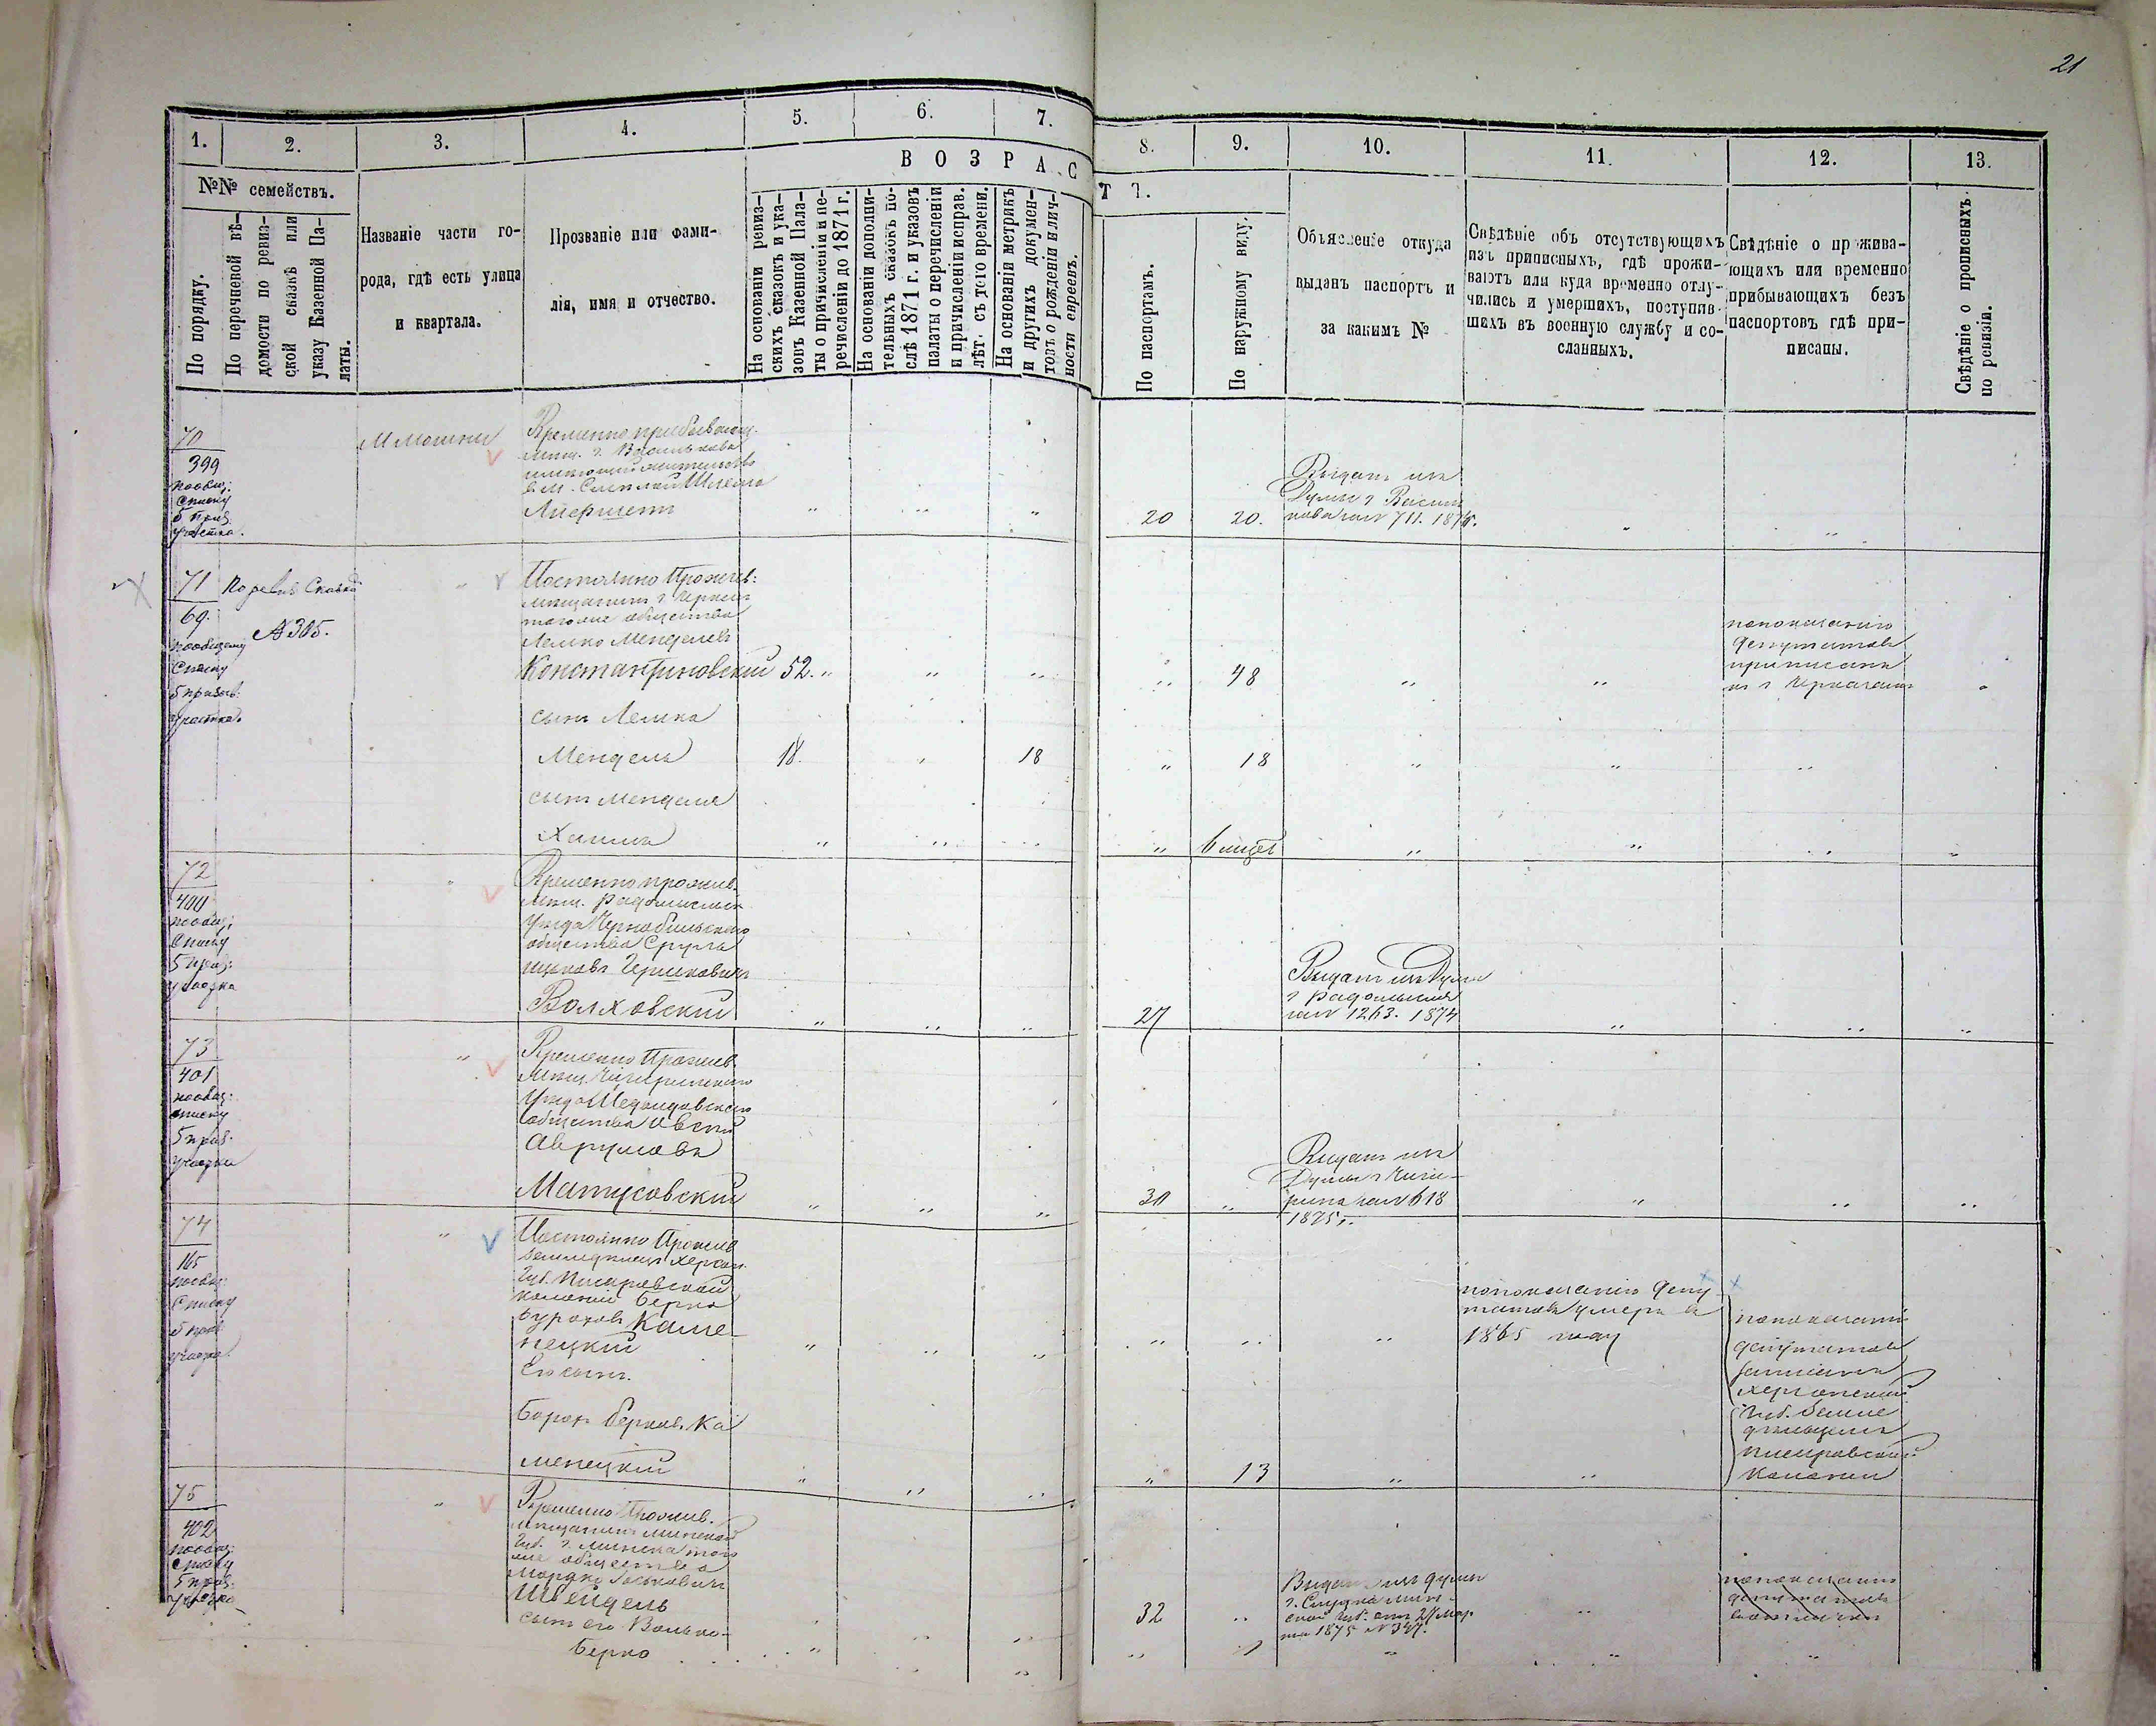 21
1.
2.
3.
4.
5.
6.
7.
8.
9.
10.
11.
12.
13.
№№ семействъ.
По порядку.
По перечневой вѣ-
домости по ревиз-
ской сказкѣ или
указу Казенной Па-
латы.
Названіе части го-
рода, гдѣ есть улица
и квартала.
Прозваніе или фами-
лія, имя и отчество.
ВОЗРАС
Т Ъ.
На основаніи ревиз-
скихъ сказокъ и ука-
зовъ Казенной Пала-
ты о причисленіи и пе-
речисленіи до 1871 г.
На основаніи дополни-
тельныхъ сказокъ по-
слѣ 1871 г. и указовъ
палаты о перечисленіи
и причисленіи исправ.
лѣт. съ того времени.
На основаніи метрикъ
и другихъ докумен-
товъ о рожденіи и лич-
ности евреевъ.
По паспортамъ.
По наружному виду.
Объясненіе откуда
выданъ паспортъ и
за какимъ №
Свѣдѣніе объ отсутствующихъ
изъ приписныхъ, гдѣ прожи-
ваютъ или куда временно отлу-
чились и умершихъ, поступив-
шихъ въ военную службу и со-
сланныхъ.
Свѣдѣніе о прожива-
ющихъ или временно
прибывающихъ безъ
паспортовъ гдѣ при-
писаны.
Свѣдѣніе о прописныхъ
по ревизіи.
70
399
пообщ:
списку
5 приз.
участка.
М Мошны
Временно прибывающ.
мѣщ. г. Василькова
имеющий жительство
в М. Смелой Шлема
20
20.
Выдан изъ
Думы г Василь
кова за № 711. 1875.
71
69.
пообщему
списку
5 призыв:
участка.
По ревиз Сказке
№ 305.
Постоянно Прожив:
мещанин г Черкасс
того же общества
Лемко Менделев
Константиновский 52.
48
попоказанию
депутатов
приписан
к г Черкасам
сын Лемка
Мендель
18.
18
18
сын Менделя
Хаима
6 месяц
72
400
пообщ:
списку
5 приз:
участка
Временно прожив.
мещ. Радомысльск
уезда Чернобыльского
общества Сруль
Ицков Гершкович
Волховский
27
Выдан из Думы
г Радомысля
за № 1263. 1874
73
401
пообщ:
списку
5 приз.
участка
Временно Прожив.
мещ. Чигиринского
уезда Медведовского
общества Овсей
Аврумовъ
Матусовский
30
Выдан изъ
Думы г Чиги-
рина за № 618
1875 г.
74
165
пообщ:
Списку
5 приз
участка
Постоянно Прожив
земледелец Херсон.
Губ. Ингаревской
колонии Берко
Бурохов Каме-
нецкий
попоказанию депу
татов умер в
1865 году
попоказанию
депутатов
записан
Херсонской
Губ. земле
дельцем
колонии
Его сын.
Борох Берков. Ка
менецкий
13
75
402
пообщ:
списку
5 приз:
участка
Временно Прожив.
мещанин Минской
Губ. г. Минска того
же общества
Мордко Госькович
Швендель
32
Выдан из думы
г. Слуцка Мин-
ской Губ. от 27 Мар
та 1875 № 327.
попоказанию
депутатов
сын его Волько-
Берко